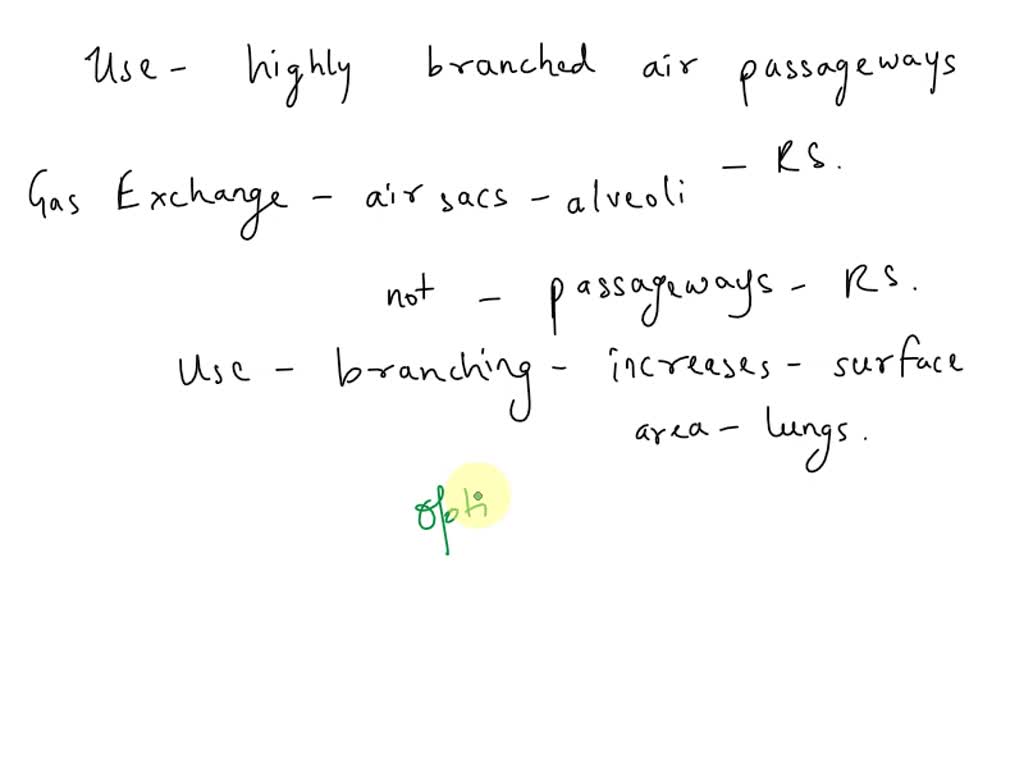 Use - highly branched air passageways
- RS.
Gas Exchange - air sacs - alveoli
not - passageways - RS.
Use - branching - increases - surface
area - lungs.
Opti